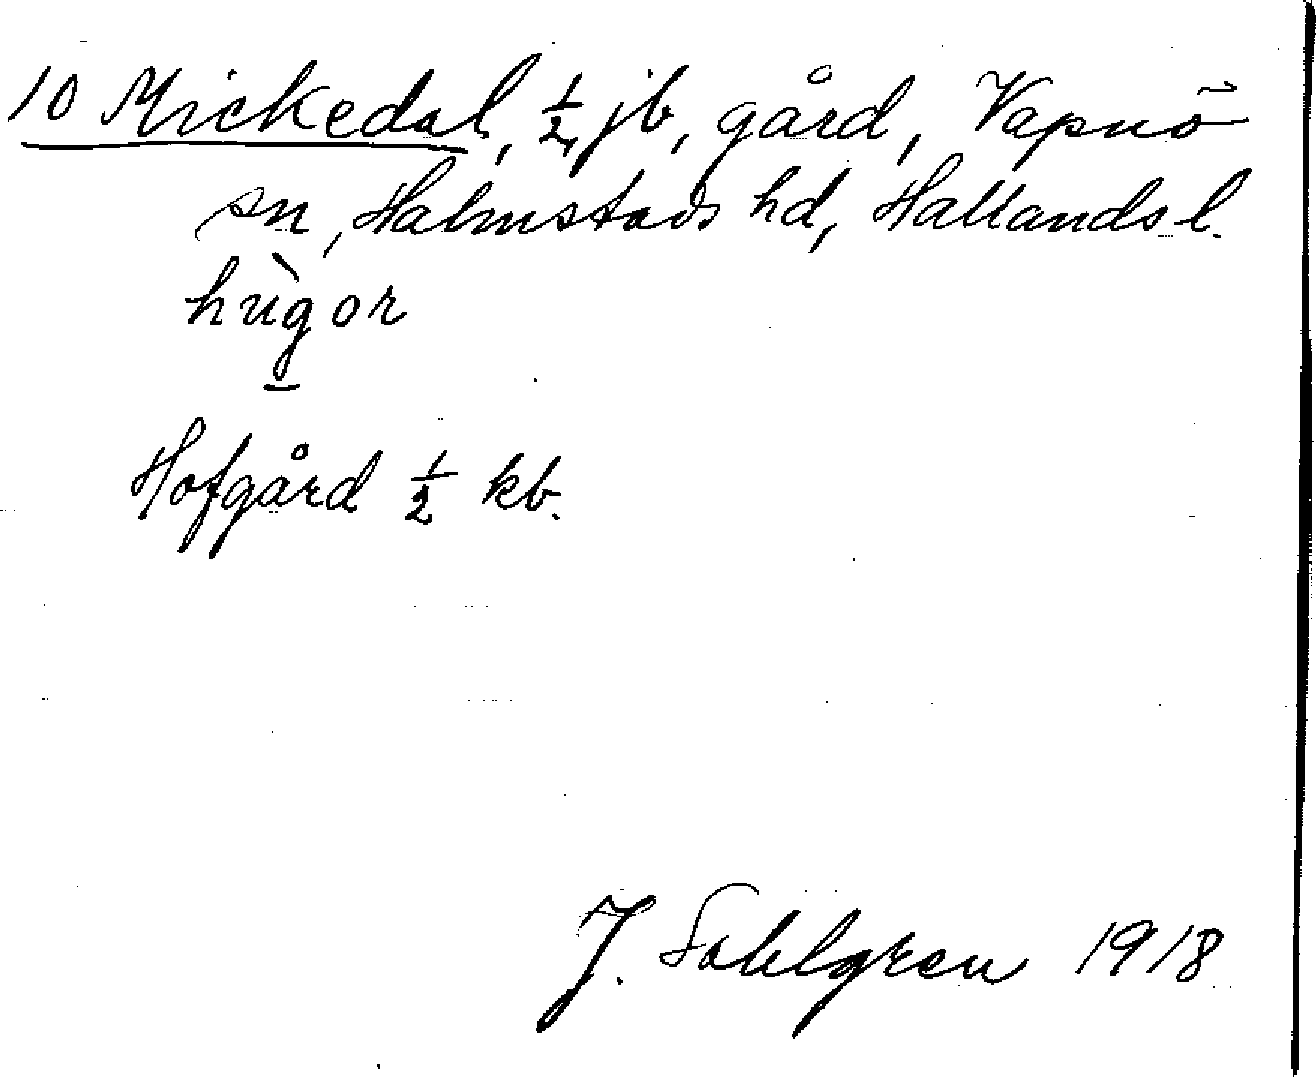 10 Mickedal, ½ jb, gård, Vapnö
sn, Halmstads hd, Hallands l.
hùgor
Hofgård ½ kb.
J. Sahlgren 1918